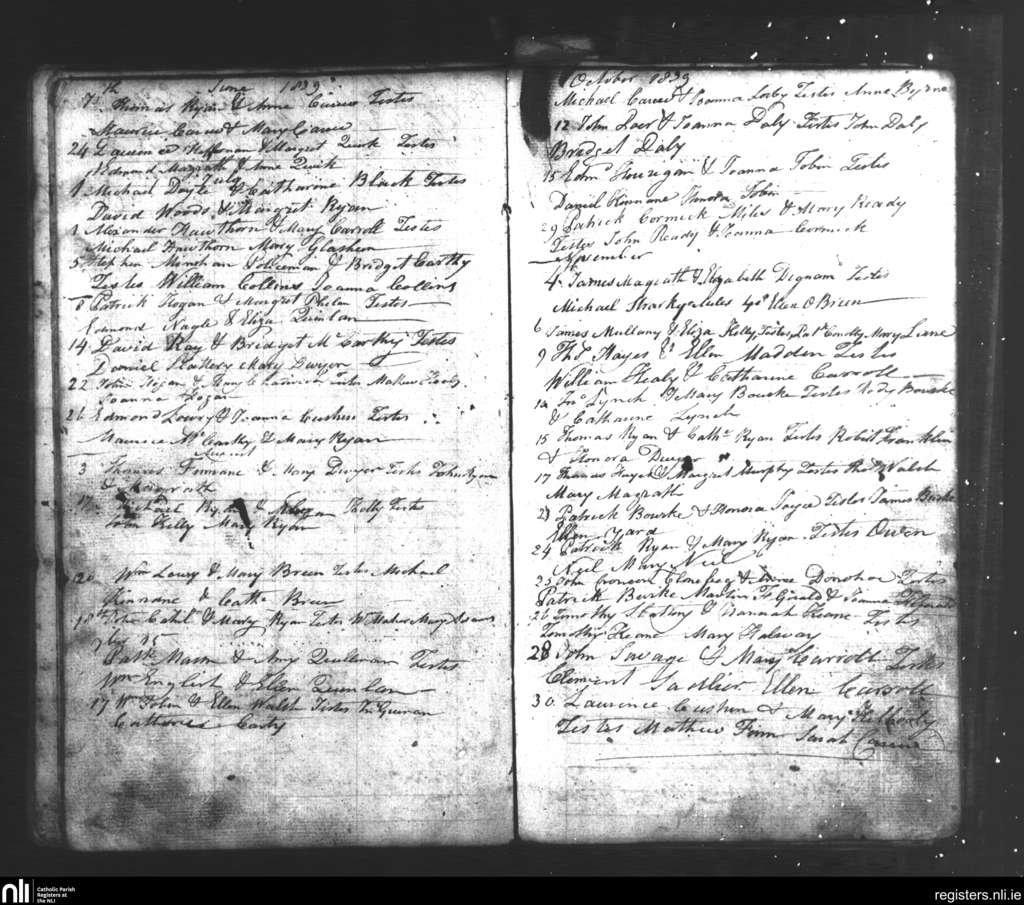 th June 1839
7 Thomas Ryan & Anne Carew Testes
Maurice Carew & Mary Carew
24 Heffernan & Margret Quirk Testes
Edmund Magrath & Anne Quirk
July
1 Michael Doyle & Catharine Black Testes
David Woods & Margret Ryan
1 Alexander Hawthorn & Mary Carroll Testes
Michael Hawthorn Mary Glasheen
5 Stephen Minehan Policeman & Bridget Carthy
Testes William Collins Joanna Collins
8 Patrick Hogan & Margret Phelan Testes
Edmond Nagle & Eliza Quinlan
14 David Ray & Bridget McCarthy Testes
Daniel Slattery Mary Dwyer
22 John Hogan &
Joanna Hogan
26 Edmond Lowry & Joanna Cushen Testes
Maurice McCarthy & Mary Ryan
August
3 Thomas Finnane & Mary Dwyer Testes John Ryan
&
17 Michael Ryan & Kelly Testes
John Kelly Mary Ryan
20 Wm Lowry & Mary Breen Testes Michael
Kinnane & Cath Breen
18th John Cahil & Mary Ryan Testes Wm Maher Mary
25
Patk Mara & Amy Quillinan Testes
Wm English & Ellen Quinlan
17 Wm John & Ellen Walsh Testes
Catherine Carty
October 1839
Michael Carew & Joanna Testes Anne Byrne
12 John Loer & Joanna Daly Testes John Daly
Bridget Daly
15 Edmd Hourigan & Joanna Tobin Testes
Daniel Kinnane Honora Tobin
29 Patrick Cormick Miles & Mary Ready
Testes John Ready & Joanna Cormick
November
4 James Magrath & Elizabeth Dignam Testes
Michael Ellen O Brien
6 James Mullany & Eliza Kelly, Testes, Patk Conolly Mary Liane
9 Thos Hayes & Ellen Madden Testes
William Healy & Catharine Carroll
12 Jno Lynch & Mary Bourke Testes Rody Bourke
& Catharine Lynch
15 Thomas Ryan & Cathe Ryan Testes Robert Franklin
& Honora Dwyer
17 Francis Hayes & Margret Murphy Testes Walsh
Mary Magrath
21 Patrick Bourke & Honora Joyce Testes James Burke
Ellen Yard
24 Patrick Ryan & Mary Ryan Testes Owen
Neil Mary Neil
25 John & Donohoe Testes
Patrick Burke Martin Fitz Gerald & Joanna
26 Timothy & Hannah Keane Testes
Timothy Keane Mary
28 John Savage & Mary Carroll Testes
Clement Sadlier Ellen Carroll
30 Laurence Cushen & Mary
Testes Mathew Sarah
nli
Catholic Parish
Registers at
the NLI
registers.nli.ie